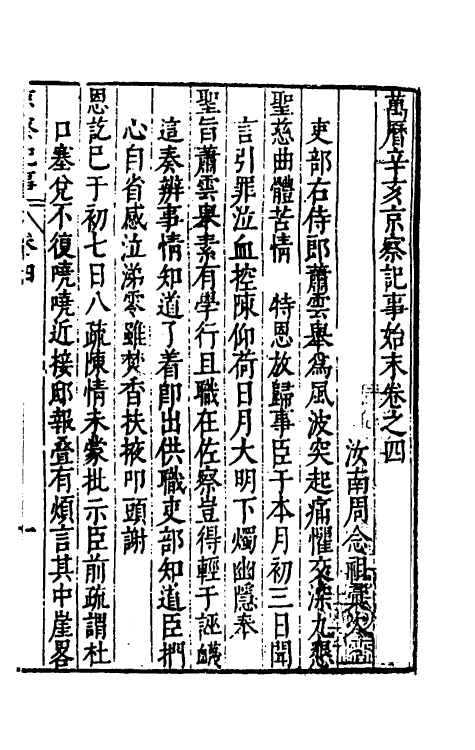 萬曆辛亥京察記事始末卷之四
汝南周念祖
吏部右侍郎蕭雲舉爲風波突起痛懼交深九懇
聖慈曲體苦情　特恩放歸事臣于本月初三日聞
言引罪泣血控陳仰荷日月大明下燭幽隱奉
聖旨蕭雲舉素有學行且職在佐察豈得輕于誣衊
這奏辨事情知道了着卽出供職吏部知道臣捫
心自省感泣涕零雖焚香扶掖叩頭謝
恩訖巳于初七日八疏陳情未蒙批示臣前疏謂杜
口塞兌不復嘵嘵近接邸報疊有煩言其中崖畧
京察記事　卷四　一